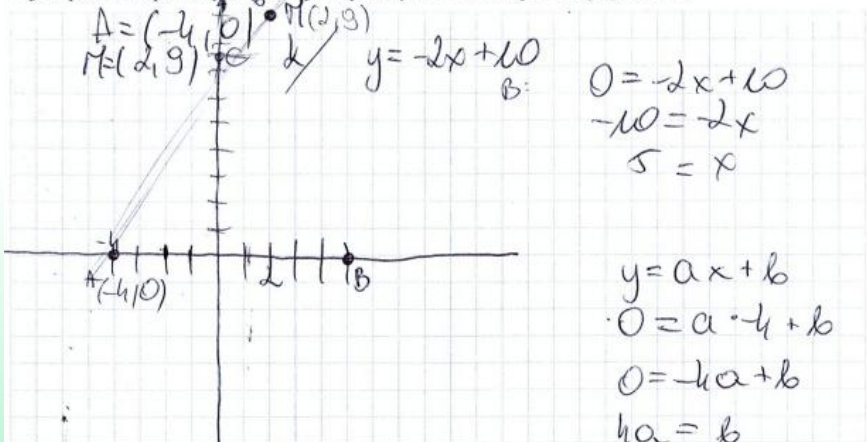 A=(-4,0)
M=(2,9)
C
M(2,9)
k
y=-2x+10
B:
0=-2x+10
-10=-2x
5=x
-4
A(-4,0)
2
B
y=ax+b
0=a·-4+b
0=-4a+b
4a=b